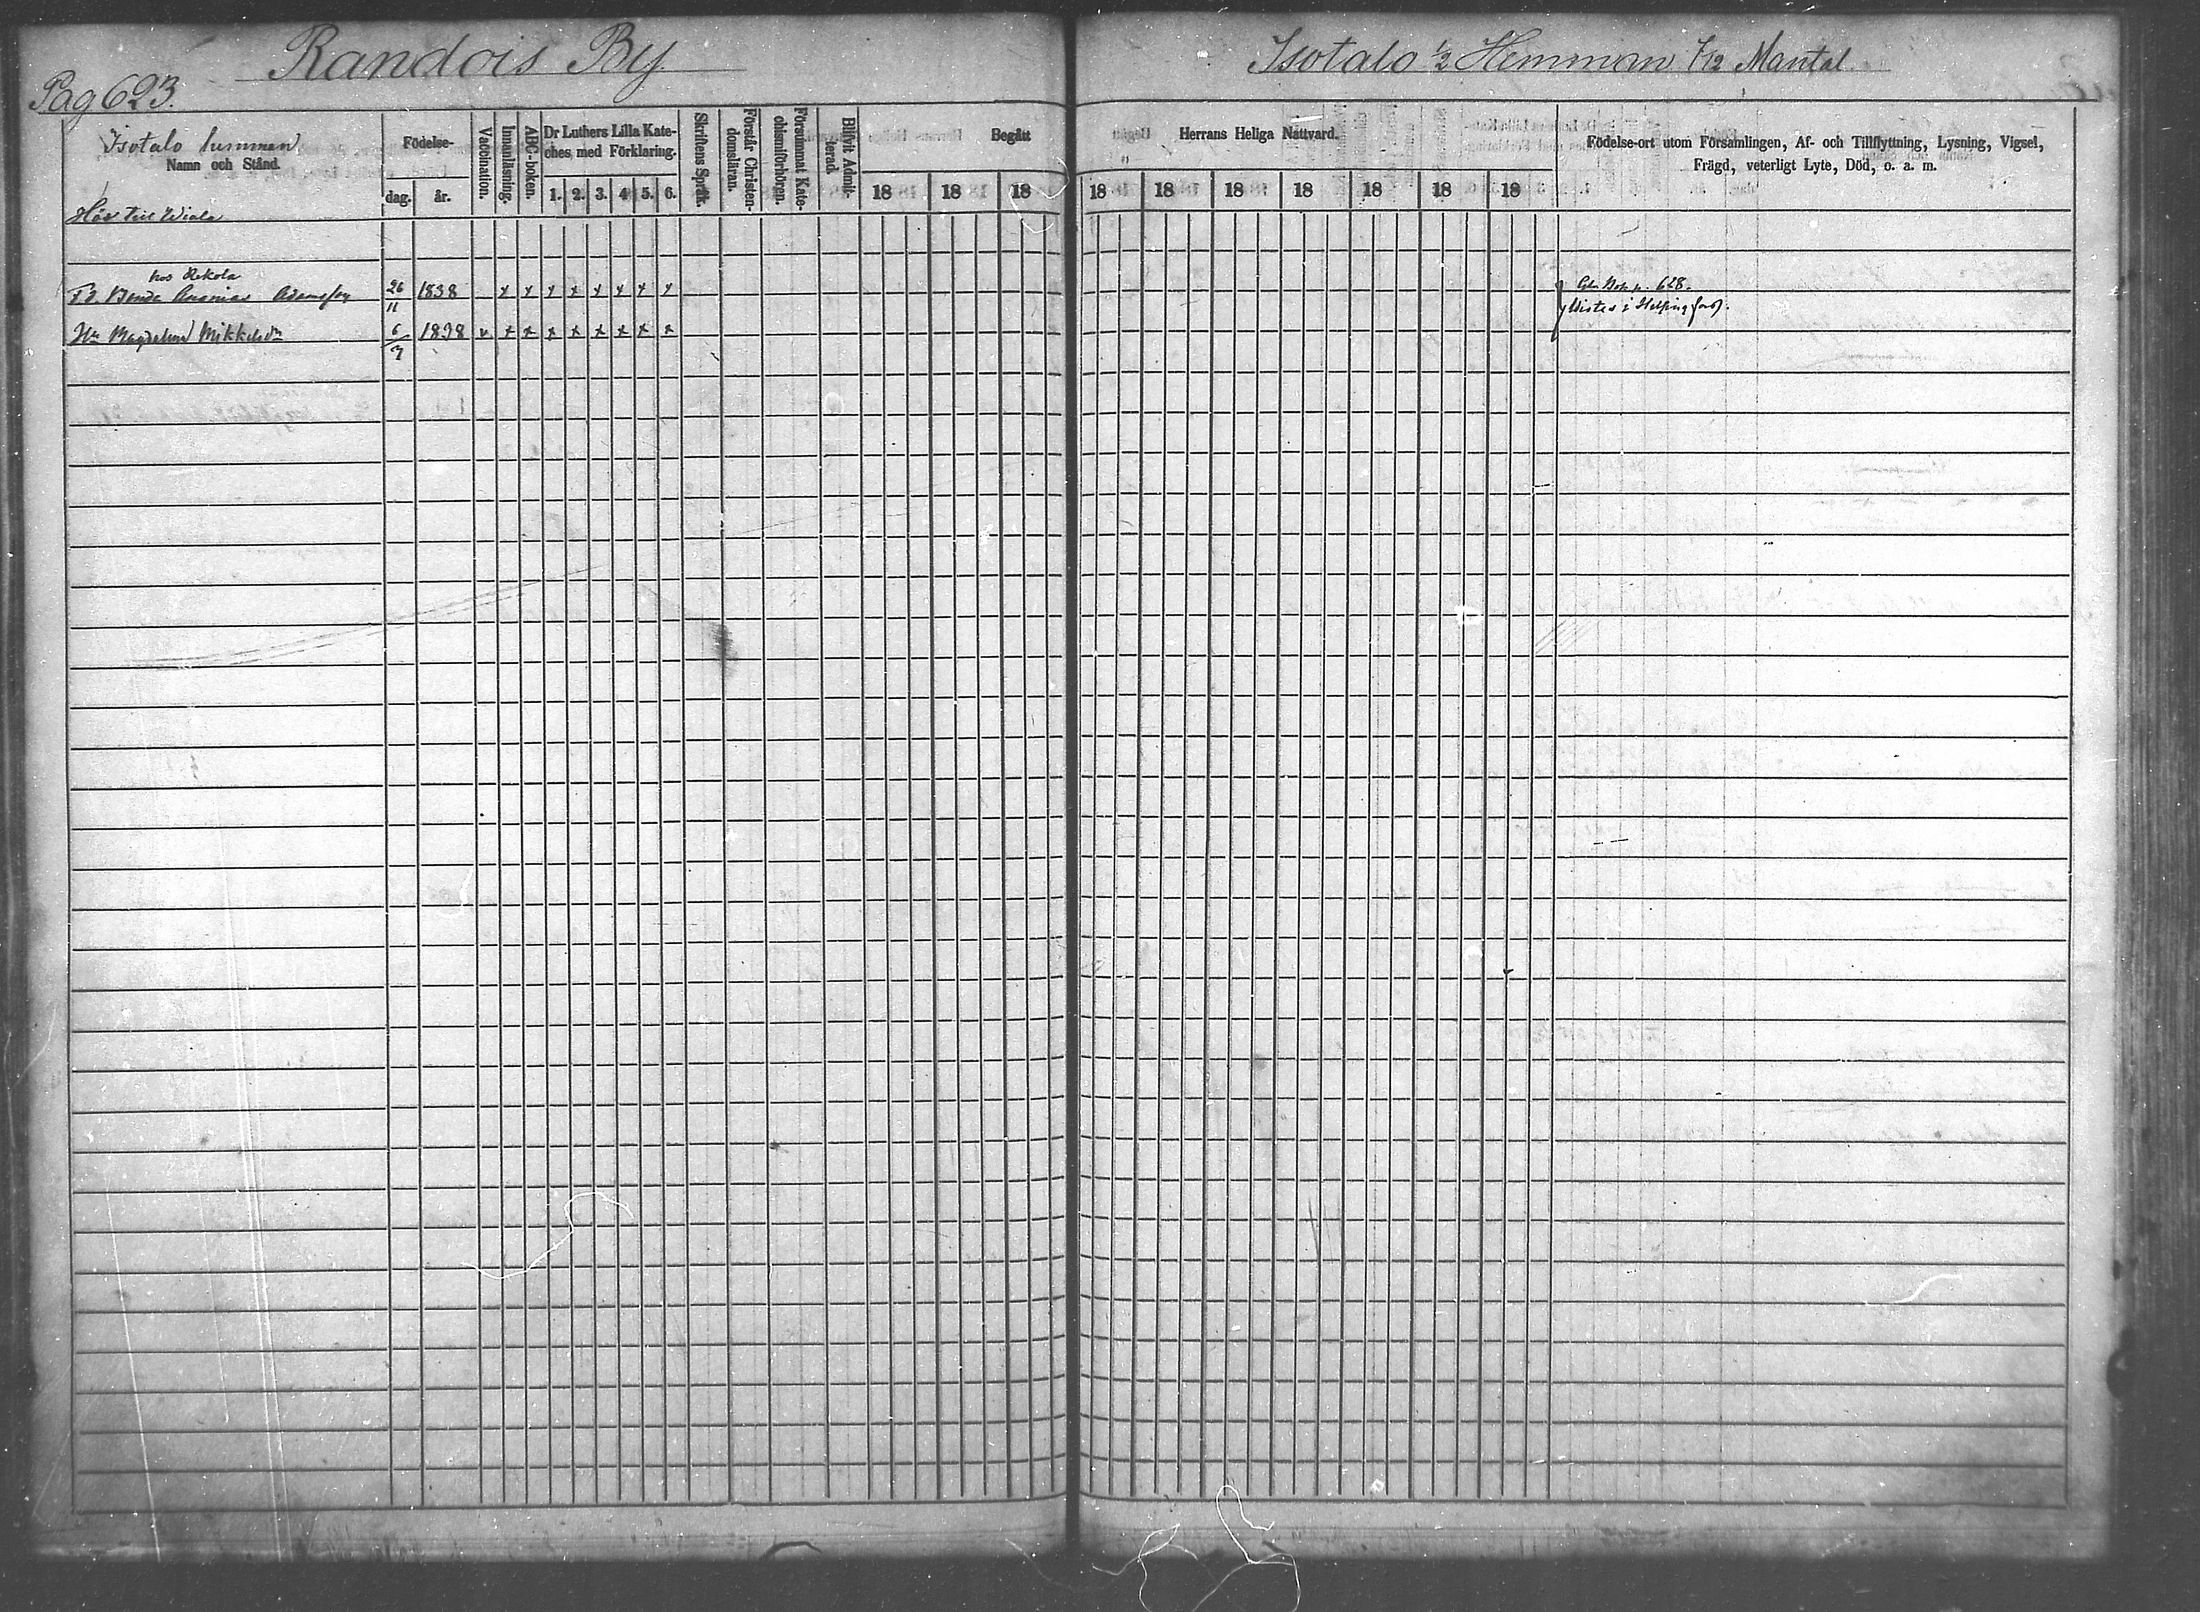 Pag 623.
Randois By.
Isotalo ½ Hemman 7/12 Mantal.
Isotalo hemman
Namn och Stånd.
Födelse-
dag.
år.
Vaccination.
Innanläsning.
ABC-boken.
Dr Luthers Lilla Kate-
ches med Förklaring.
1. 2. 3. 4. 5. 6.
Skriftens Språk.
Förstår Christen-
domsläran.
Försummat Kate-
chismiförhören.
Blifvit Admit-
terad.
Begått
18 18 18
Herrans Heliga Nattvard.
18 18 18 18 18 18 18
Födelse-ort utom Församlingen, Af- och Tillflyttning, Lysning, Vigsel,
Frägd, veterligt Lyte, Död, o. a. m.
Hör till Wiala
hos Rekola
F.d. Bonde Ananias Adamsson 26/11 1838 x x x x x x x x
Hu Magdelena Mikkelsdr 6/7 1838 v x x x x x x x x
p. 628.
Vistas i Helsingfors.